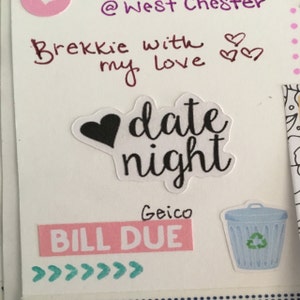 @West Chester
Brekkie with
my love
date
night
Geico
BILL DUE